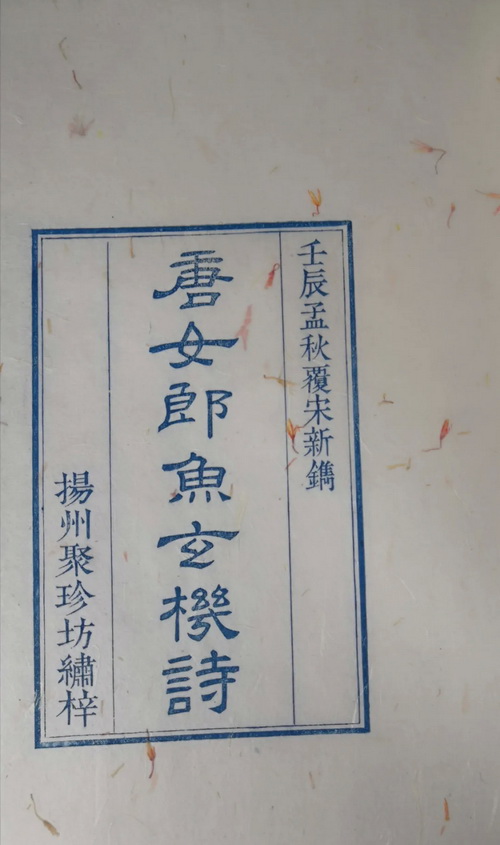 壬辰孟秋覆宋新鐫
唐女郎魚玄機詩
揚州聚珍坊繡梓